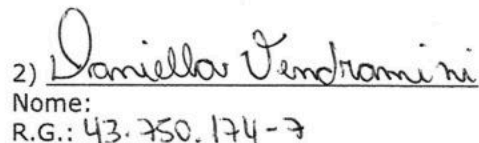 2) Daniella Vendramini
Nome:
R.G.: 43.750.174-7